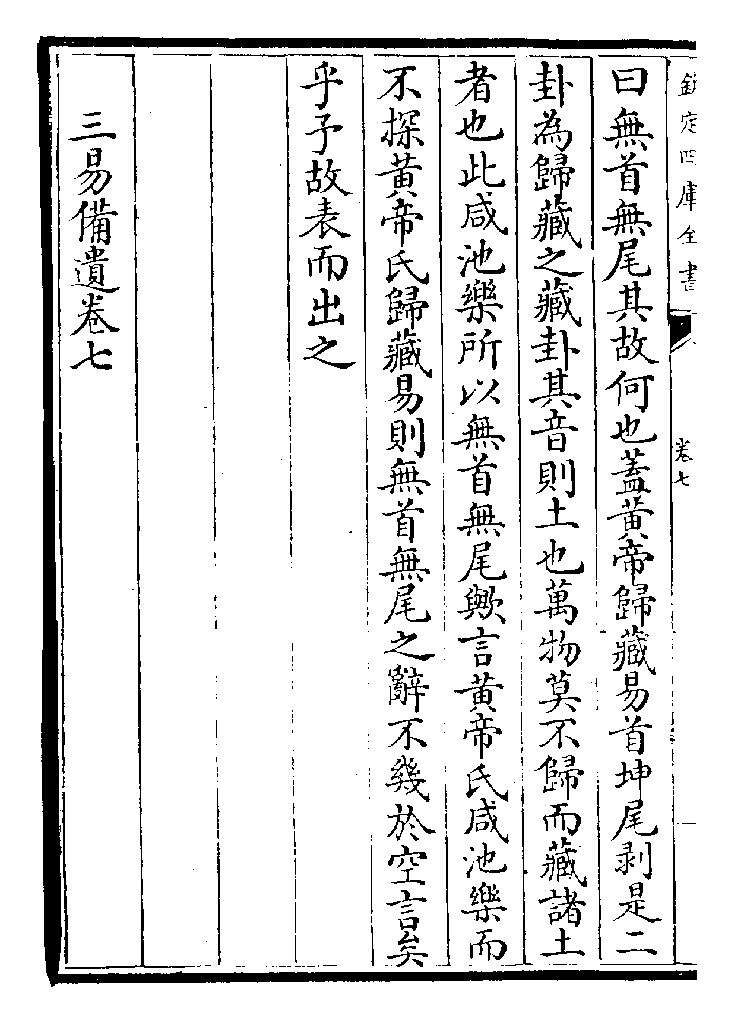 欽定四庫全書
卷七
曰無首無尾其故何也蓋黃帝歸藏易首坤尾剥是二
卦為歸藏之藏卦其音則土也萬物莫不歸而藏諸土
者也此咸池樂所以無首無尾歟言黃帝氏咸池樂而
不探黃帝氏歸藏易則無首無尾之辭不幾於空言矣
乎予故表而出之
三易備遺卷七